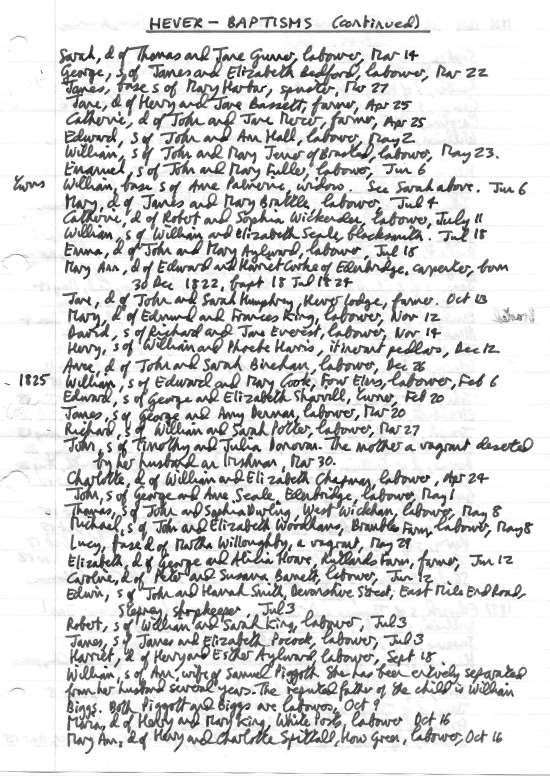 HEVER – BAPTISMS (continued)
Sarah, d of Thomas and Jane Gunner, labourer, Mar 14
George, s of James and Elizabeth Bedford, labourer, Mar 22
James, base s of Mary Harbor, spinster, Mar 27
Jane, d of Henry and Jane Bassett, farmer, Apr 25
Catherine, d of John and Jane Mercer, farmer, Apr 25
Edward, s of John and Ann Hall, labourer, May 2
William, s of John and Mary Jenner of Brasted, labourer, May 23.
Emanuel, s of John and Mary Fuller, labourer, Jun 6
Twins William, base s of Anne, widow. See Sarah above. Jun 6
Mary, d of James and Mary Brattle, labourer, Jul 4
Catherine, d of Robert and Sophia Wickenden, labourer, July 11
William, s of William and Elizabeth Seale, blacksmith. Jul 18
Emma, d of John and Mary Aylward, labourer, Jul 18
Mary Ann, d of Edward and Harriet Cooke of Edenbridge, carpenter, born
30 Dec 1822, bapt 18 Jul 1824
Jane, d of John and Sarah Humphrey, Hever Lodge, farmer. Oct 13
Mary, d of Edmund and Frances King, labourer, Nov 12
David, s of Richard and Jane Everest, labourer, Nov 14
Henry, s of William and Phoebe Harris, itinerant pedlars, Dec 12
Anne, d of John and Sarah Bineham, labourer, Dec 26
1825 William, s of Edward and Mary Cook, Four Elms, labourer, Feb 6
Edward, s of George and Elizabeth Sharvill, turner, Feb 20
James, s of George and Amy Denman, labourer, Mar 20
Richard, s of William and Sarah Potter, labourer, Mar 27
John, s of Timothy and Julia Donovan. The mother a vagrant deserted
by her husband an Irishman, Mar 30.
Charlotte, d of William and Elizabeth Chapman, labourer, Apr 24
John, s of George and Anne Seale, Edenbridge, labourer, May 1
Thomas, s of John and Sophia Durling, West Wickham, labourer, May 8
Michael, s of John and Elizabeth Woodhams, Brambles Farm, labourer, May 8
Lucy, base d of Martha Willoughby, a vagrant, May 29
Elizabeth, d of George and Alicia Howe, Rutlands Farm, farmer, Jun 12
Caroline, d of Peter and Susanna Barnett, labourer, Jun 12
Edwin, s of John and Hannah Smith, Devonshire Street, East Mile End Road,
Stepney, shopkeeper, Jul 3
Robert, s of William and Sarah King, labourer, Jul 3
James, s of James and Elizabeth Pocock, labourer, Jul 3
Harriet, d of Henry and Esther Aylward labourer, Sept 18.
William, s of Ann, wife of Samuel Piggott. She has been entirely separated
from her husband several years. The reputed father of the child is William
Biggs. Both Piggott and Biggs are labourers, Oct 9
Maria, d of Henry and Mary King, White Post, labourer Oct 16
Mary Ann, d of Henry and Charlotte Spittall, How Green, labourer, Oct 16